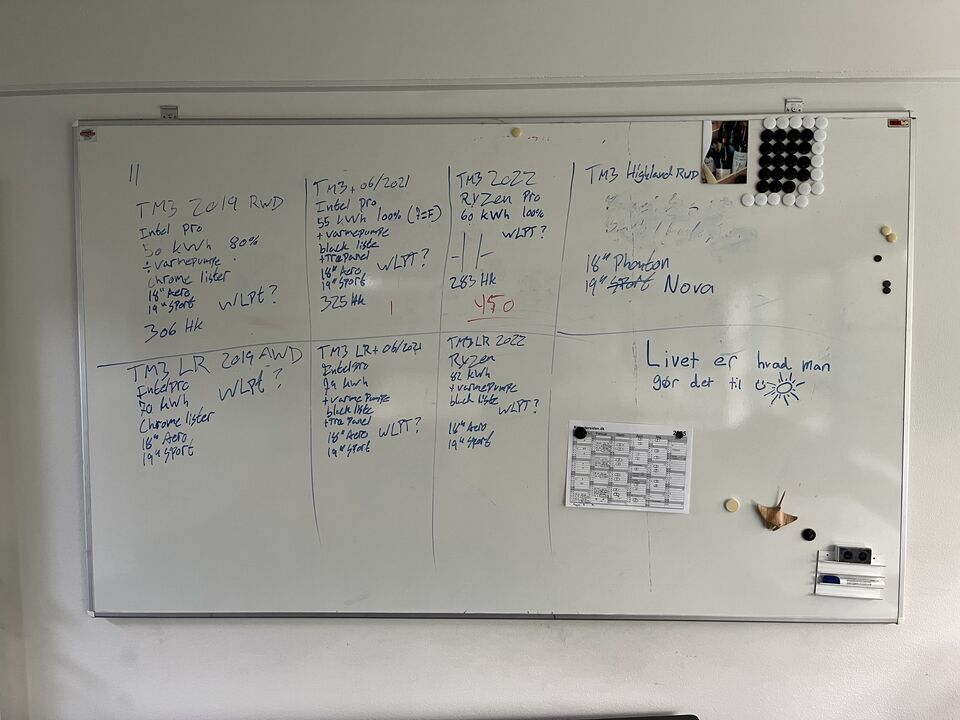 TM3 2019 RWD
Intel Pro
50 kWh 80%
÷ varmepumpe
Chrome lister
18" Aero
19" Sport
WLPT?
306 Hk
TM3 + 06/2021
Intel Pro
55 kWh 100% (i=F)
+ varmepumpe
black liste
+ Træpanel
18" Aero
19" Sport
WLPT?
325 Hk
TM3 2022
RYZEN Pro
60 kWh 100%
WLPT?
283 Hk
450
TM3 Highland RWD
18" Photon
19" Sport Nova
TM3 LR 2019 AWD
Intel Pro
70 kWh
WLPT?
Chrome lister
18" Aero
19" Sport
TM3 LR + 06/2021
Intel Pro
79 kWh
+ varme Pumpe
black liste
+ Træ Panel
18" Aero
19" Sport
WLPT?
TM3 LR 2022
Ryzen
82 kWh
+ varmepumpe
black liste
WLPT?
18" Aero
19" Sport
Livet er hvad man
gør det til